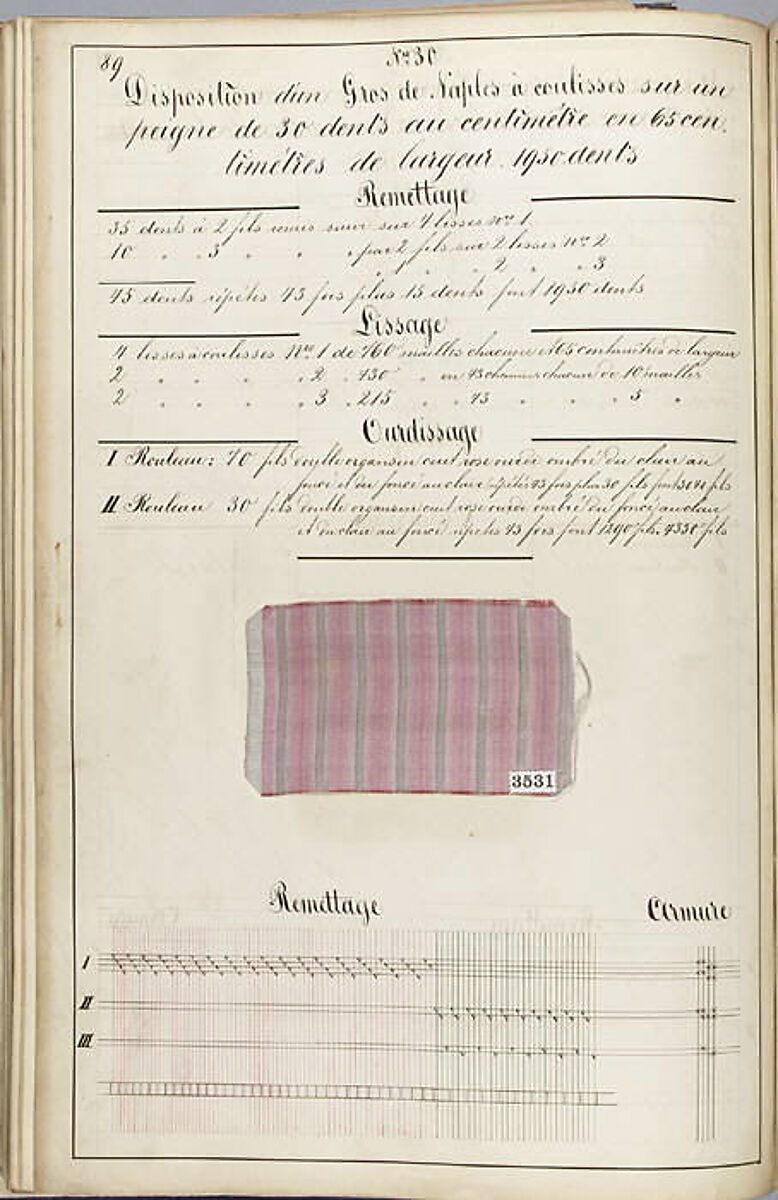 89
Nº 30
Disposition d'un Gros de Naples à coulisses sur un
peigne de 30 dents au centimètre en 65 cen
timètres de largeur. 1950 dents
Remettage
35 dents à 2 fils remis suivi sur 4 lisses Nº 1.
10 " " 3 " " " par 2 fils sur 2 lisses Nº 2
" 1 " " 2 " " 3
45 dents répétés 43 fois plus 15 dents font 1950 dents
Lissage
4 lisses à coulisses Nº 1 de 760 mailles chacune et 65 centimètres de largeur
2 " " " " 2 " 430 " en 43 chemins chacune de 10 mailles
2 " " " " 3 " 215 " " 43 " " " 5 "
Ourdissage
I Rouleau: 70 fils double organsin cuit rose ombré du clair au
foncé et du foncé au clair répétés 43 fois plus 30 fils font 3040 fils
II Rouleau 30 fils double organsin cuit rose ombré du foncé au clair
et du clair au foncé répétés 43 fois font 1290 fils. 4330 fils
3531
Remettage
Armure
I
II
III